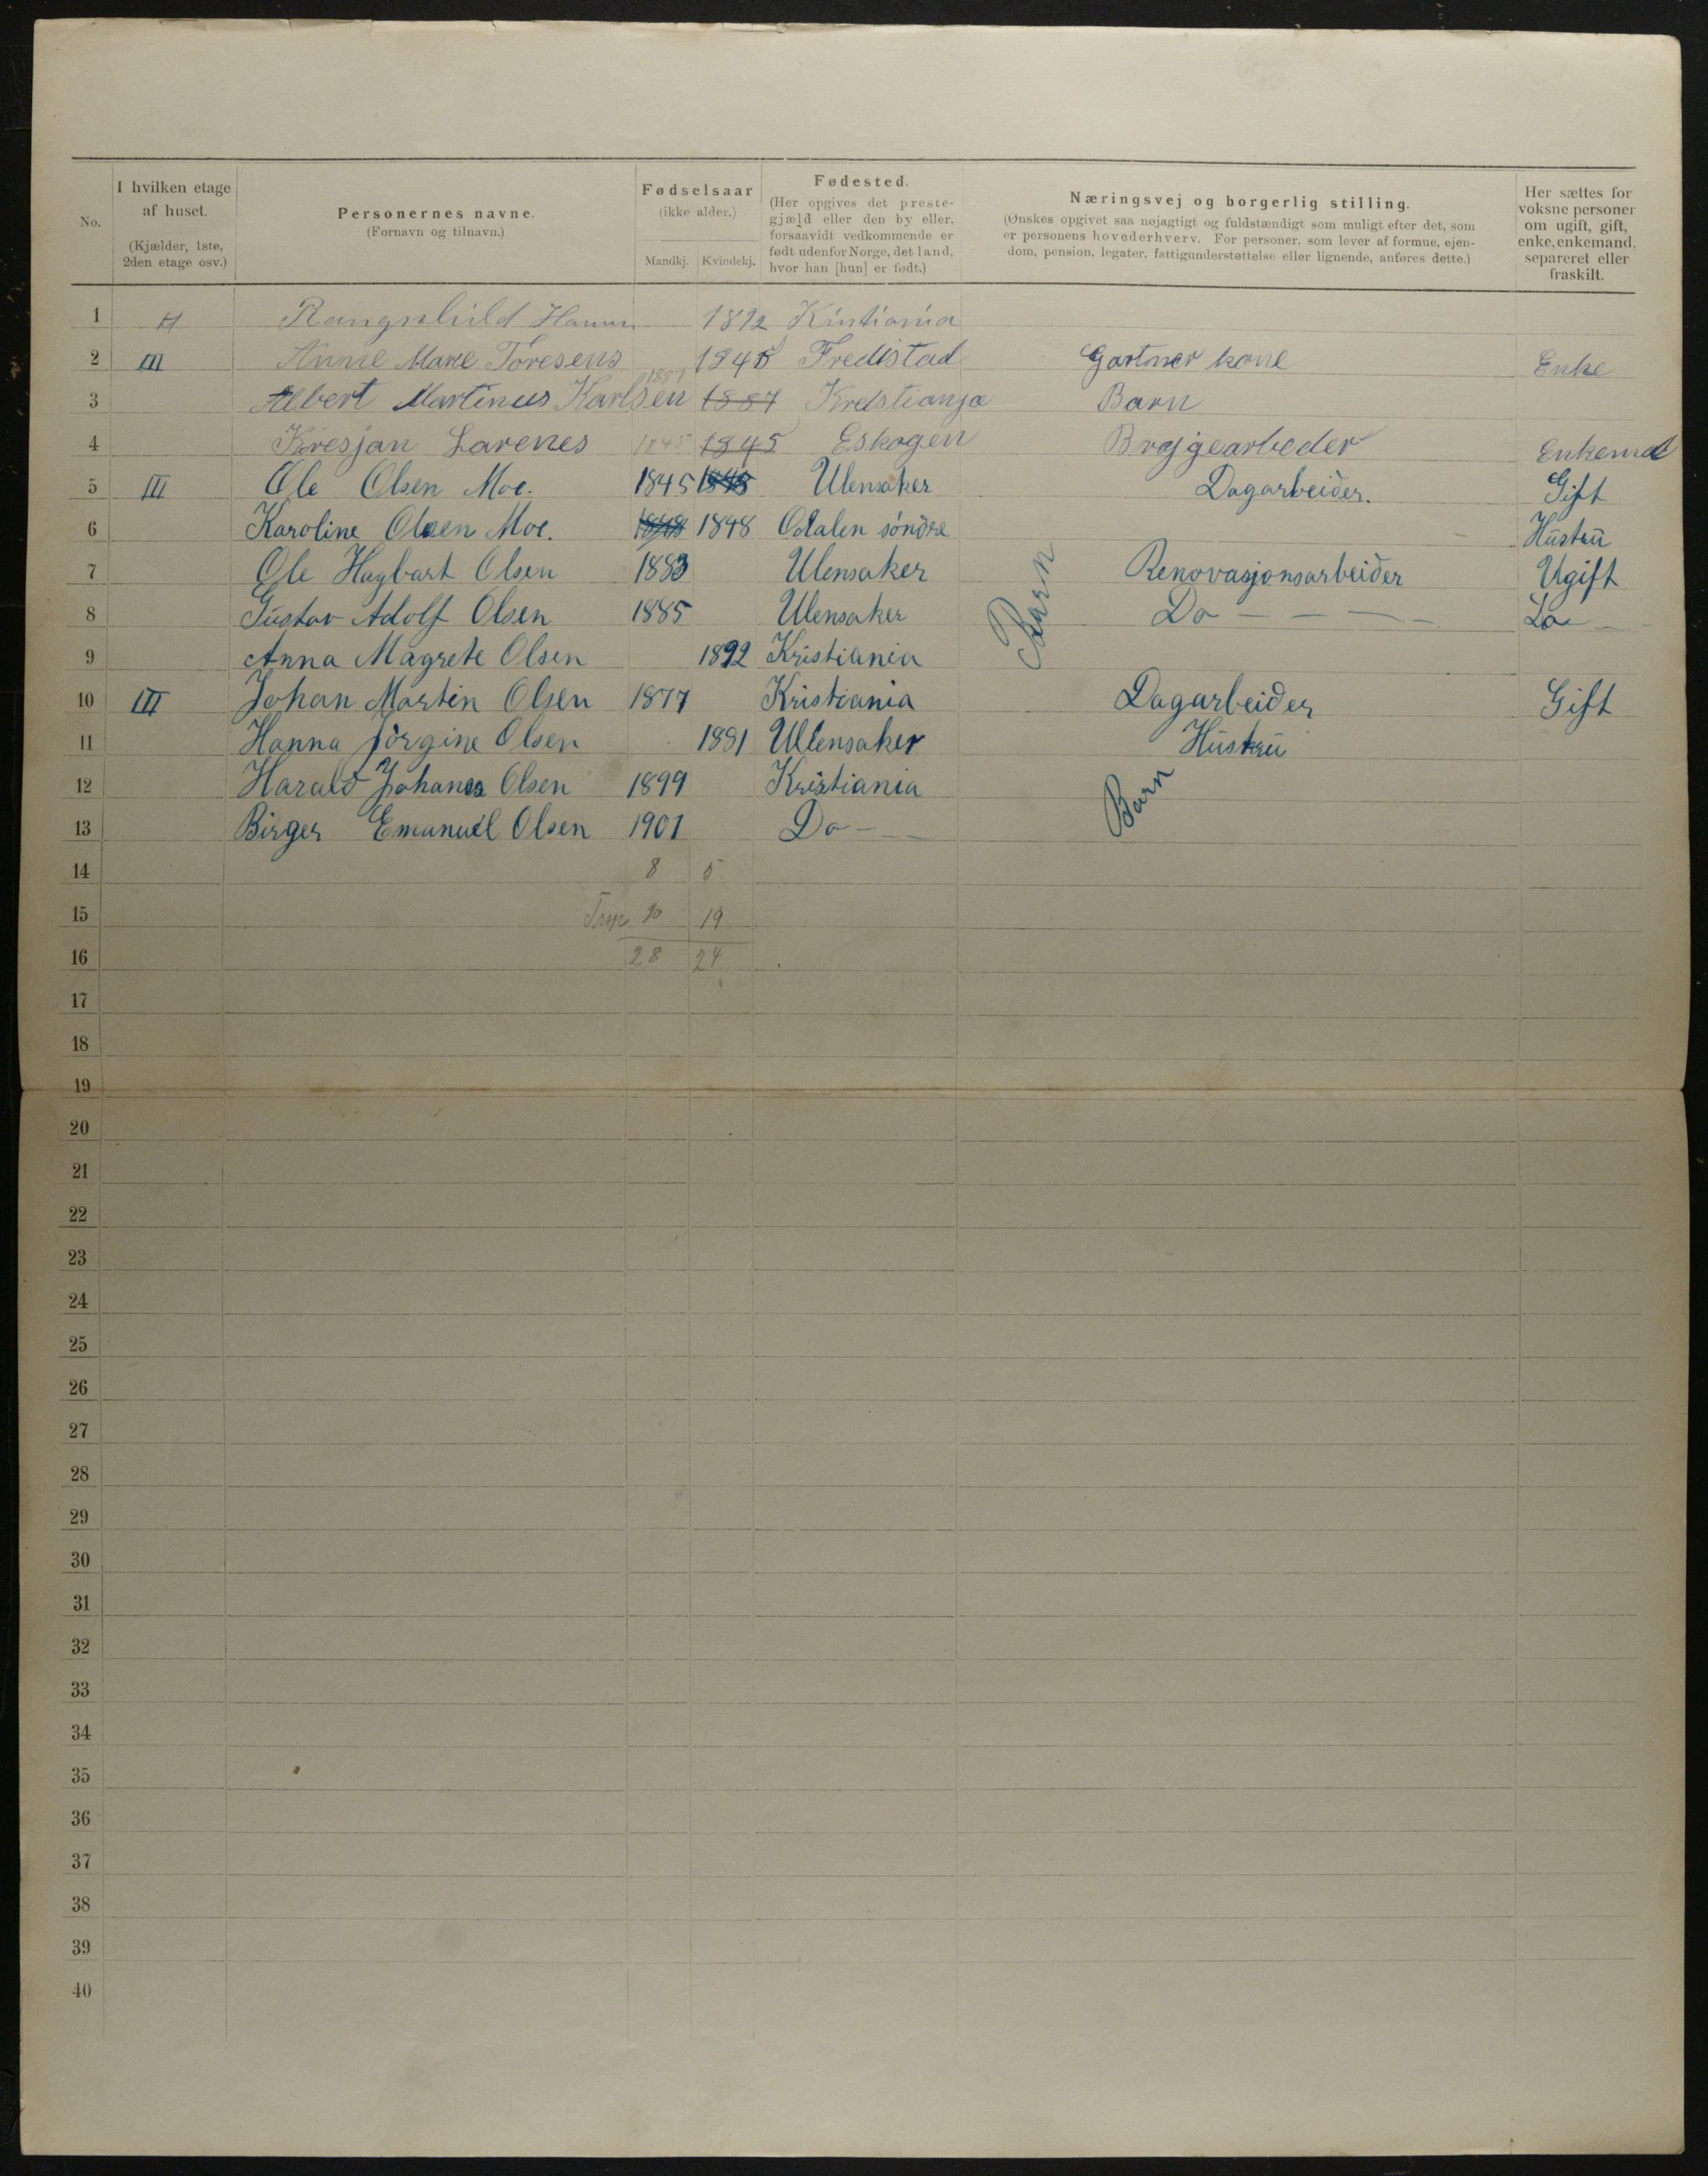 No.
I hvilken etage af huset.
(Kjælder, 1ste, 2den etage osv.)
Personernes navne.
(Fornavn og tilnavn.)
Fødselsaar
(ikke alder.)
Mandkj. Kvindekj.
Fødested.
(Her opgives det preste-
gjæld eller den by eller,
forsaavidt vedkommende er
født udenfor Norge, det land,
hvor han [hun] er født.)
Næringsvej og borgerlig stilling.
(Ønskes opgivet saa nøjagtigt og fuldstændigt som muligt efter det, som
er personens hovederhverv. For personer, som lever af formue, ejen-
dom, pension, legater, fattigunderstøttelse eller lignende, anføres dette.)
Her sættes for
voksne personer
om ugift, gift,
enke, enkemand,
separeret eller
fraskilt.
1 H Rangnhild 1892 Kristiania
2 III Anne Marie Toresens 1845 Fredistad Gartner kone Enke
3 Albert Martinus Karlsen 1887 1887 Kredstianja Barn
4 Kresjan Larenes 1845 1845 Eskogen Bryggearbeder Enkemd
5 III Ole Olsen Moe. 1845 1845 Ulensaker Dagarbeider. Gift
6 Karoline Olsen Moe. 1848 1848 Odalen söndre Hustru
7 Ole Hagbart Olsen 1883 Ulensaker Barn Renovasjonsarbeider Ugift
8 Gustav Adolf Olsen 1885 Ulensaker Do - - - - Do - -
9 Anna Magrete Olsen 1892 Kristiania
10 III Johan Martin Olsen 1877 Kristiania Dagarbeider Gift
11 Hanna Jörgine Olsen 1881 Ullensaker Hustru
12 Harald Johanes Olsen 1899 Kristiania Barn
13 Birger Emanuel Olsen 1901 Do - -
14 8 5
15 20 19
16 28 24
17
18
19
20
21
22
23
24
25
26
27
28
29
30
31
32
33
34
35
36
37
38
39
40